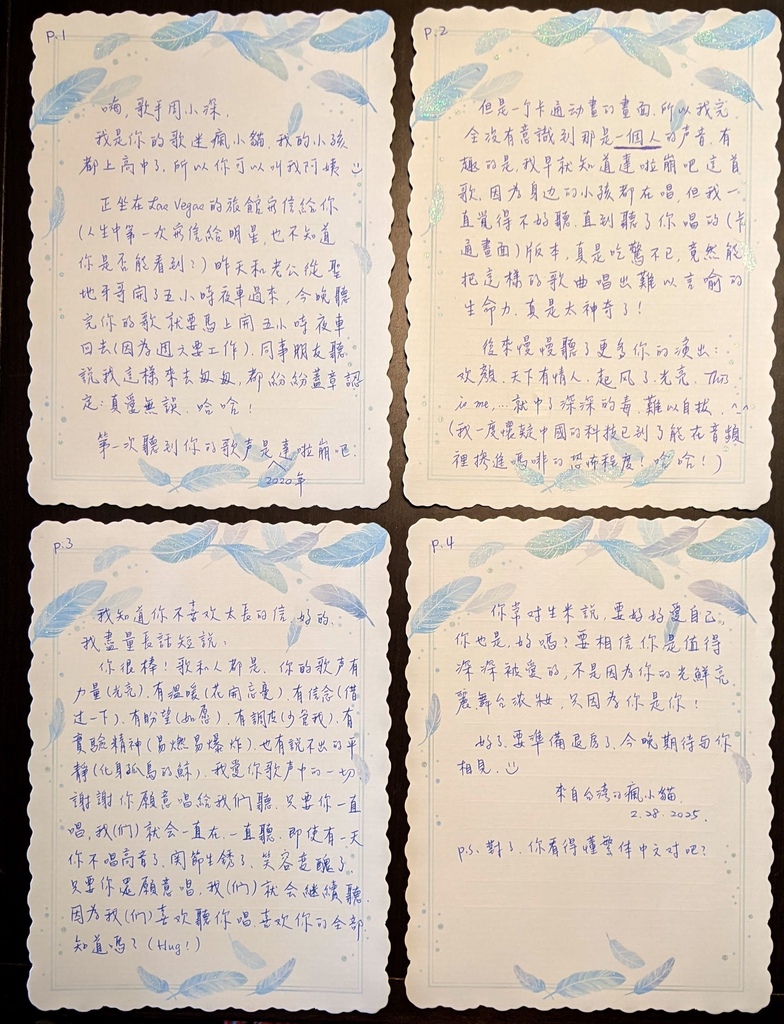 p.1
嗨,歌手周小深,
我是你的歌迷瘋小貓,我的小孩
都上高中了,所以你可以叫我阿姨
正坐在Las Vegas的旅館寫信給你
(人生中第一次寫信給明星,也不知道
你是否能看到?)昨天和老公從聖
地牙哥開了五小時夜車過來,今晚聽
完你的歌就要馬上開五小時夜車
回去(因為週六要工作).同事朋友聽
說我這樣來去匆匆,都紛紛蓋章認
定:真愛無誤.哈哈!
第一次聽到你的歌声是達啦崩吧:
2020年
p.2
但是一个卡通动畫的畫面,所以我完
全沒有意識到那是一個人的声音.有
趣的是,我早就知道達啦崩吧這首
歌,因為身边的小孩都在唱,但我一
直覚得不好聽.直到聽了你唱的(卡
通畫面)版本,真是吃驚不已,竟然能
把這樣的歌曲唱出難以言喻的
生命力.真是太神奇了!
後來慢慢聽了更多你的演出:
欢顏.天下有情人.起風了.光亮.This
is me,...就中了深深的毒,難以自拔 ^^
(我一度懷疑中國的科技已到了能在音頻
裡摻進嗎啡的恐怖程度!哈哈!)
p.3
我知道你不喜欢太長的信,好的.
我盡量長話短說:
你很棒!歌和人都是.你的歌声有
力量(光亮).有溫暖(花開忘憂).有信念(借
过一下).有盼望(如愿).有調皮(少管我).有
實驗精神(易燃易爆炸).也有說不出的平
靜(化身孤島的鯨).我愛你歌声中的一切
謝謝你願意唱給我們聽.只要你一直
唱,我(们)就会一直在.一直聽.即使有一天
你不唱高音了,関節生銹了.笑容变醜了
只要你還願意唱,我(们)就会継續聽.
因為我(们)喜欢聽你唱.喜欢你的全部
知道嗎?(Hug!)
p.4
你常对生米説,要好好愛自己,
你也是,好嗎?要相信你是值得
深深被愛的,不是因為你的光鮮亮
麗舞台浓妝,只因為你是你!
好了,要準備退房了,今晚期待与你
相見.
來自台湾的瘋小貓.
2.28.2025.
p.s.對了,你看得懂繁体中文对吧?